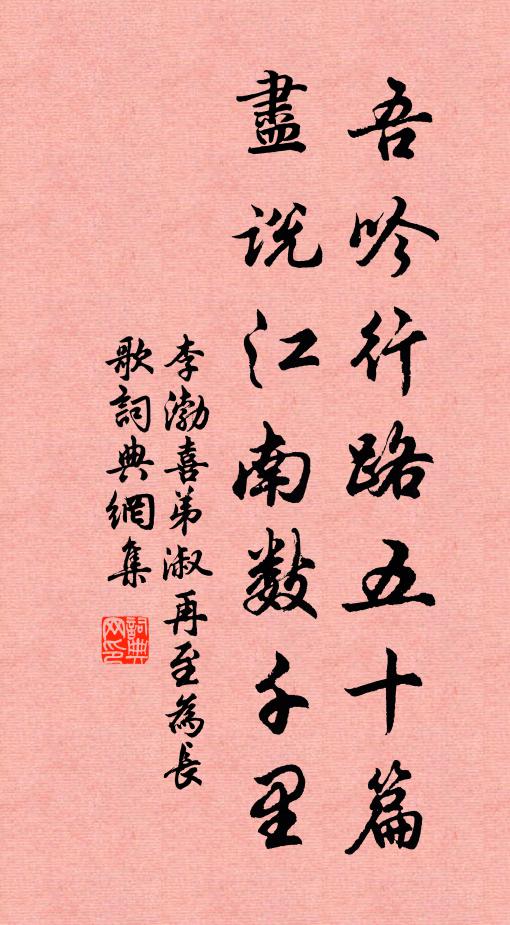 吾吟行路五十篇
盡説江南数千里
李渤喜弟淑再至為長
歌詞典網集
詞典网印